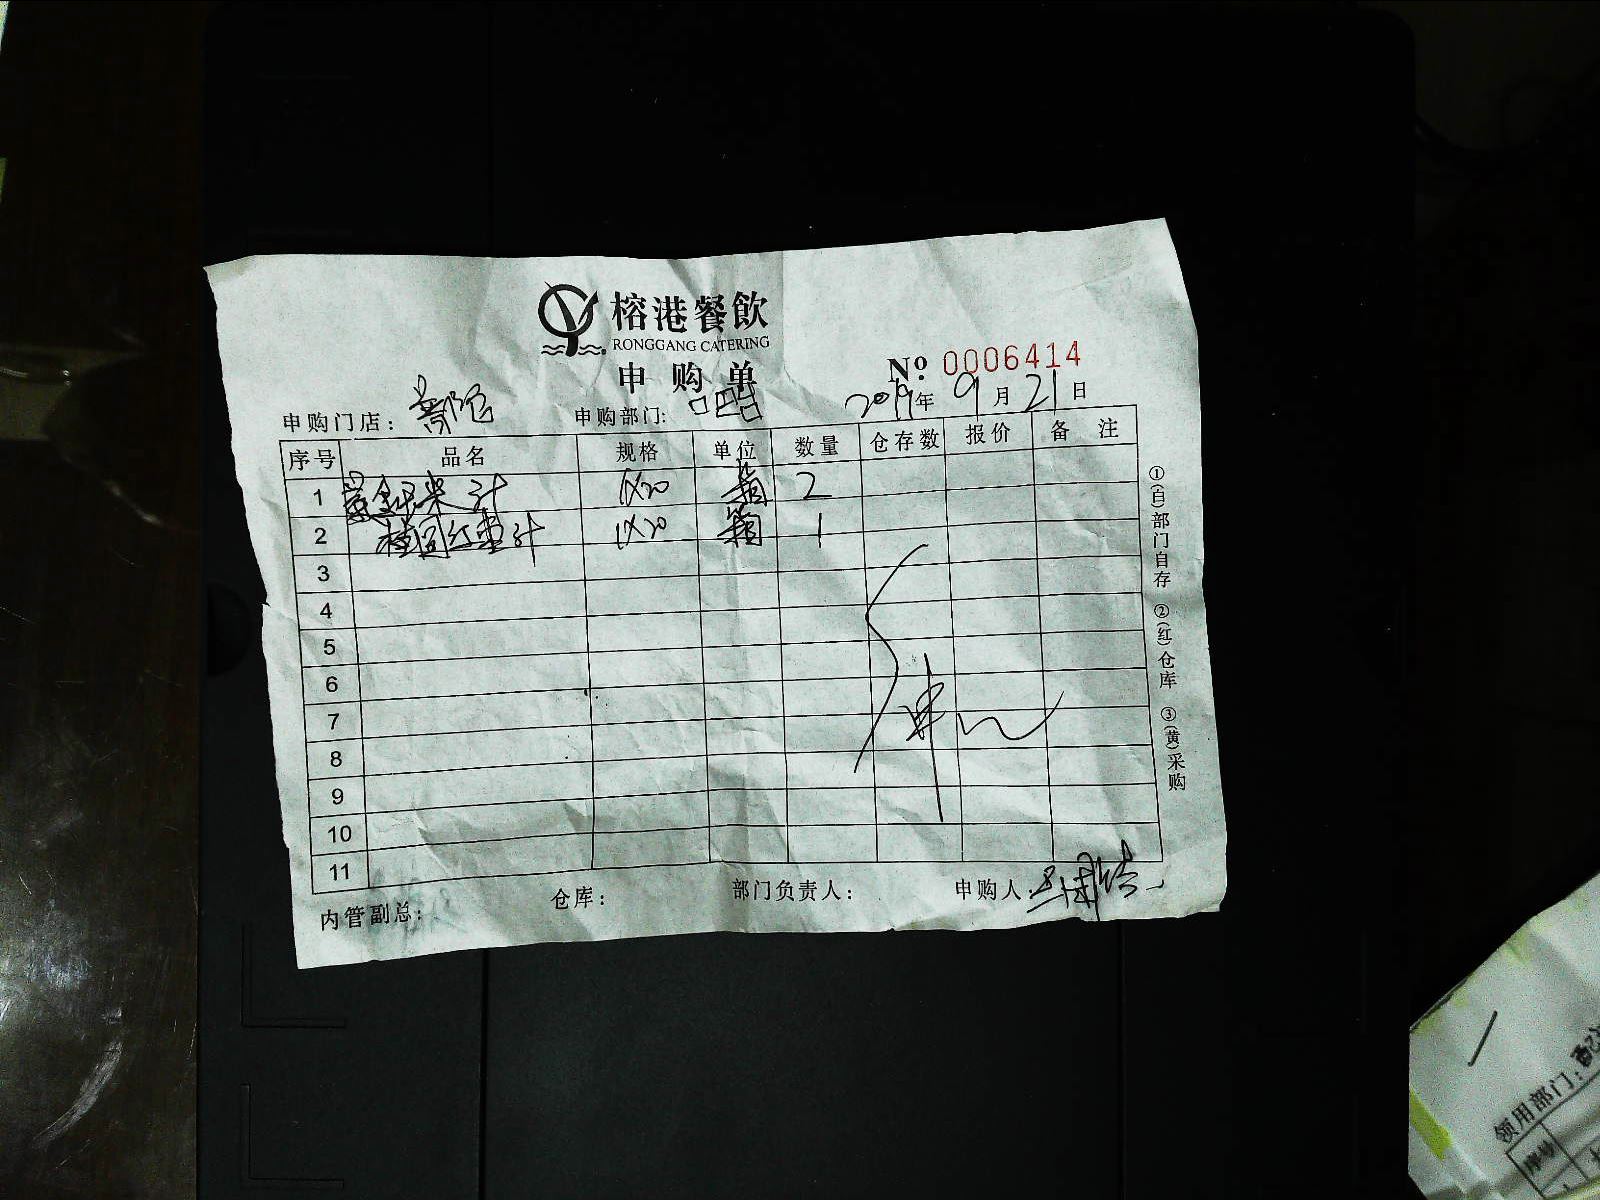 榕港餐飲
RONGGANG CATERING
申购单
№ 0006414
申购门店：
申购部门：
2019年9月21日
序号 品名 规格 单位 数量 仓存数 报价 备注
1 黄金玉米汁 1X20 箱 2
2 桂圆红枣汁 1X20 箱 1
3
4
5
6
7
8
9
10
11
内管副总： 仓库： 部门负责人： 申购人：
①(白)部门自存 ②(红)仓库 ③(黄)采购
领用部门：
序号